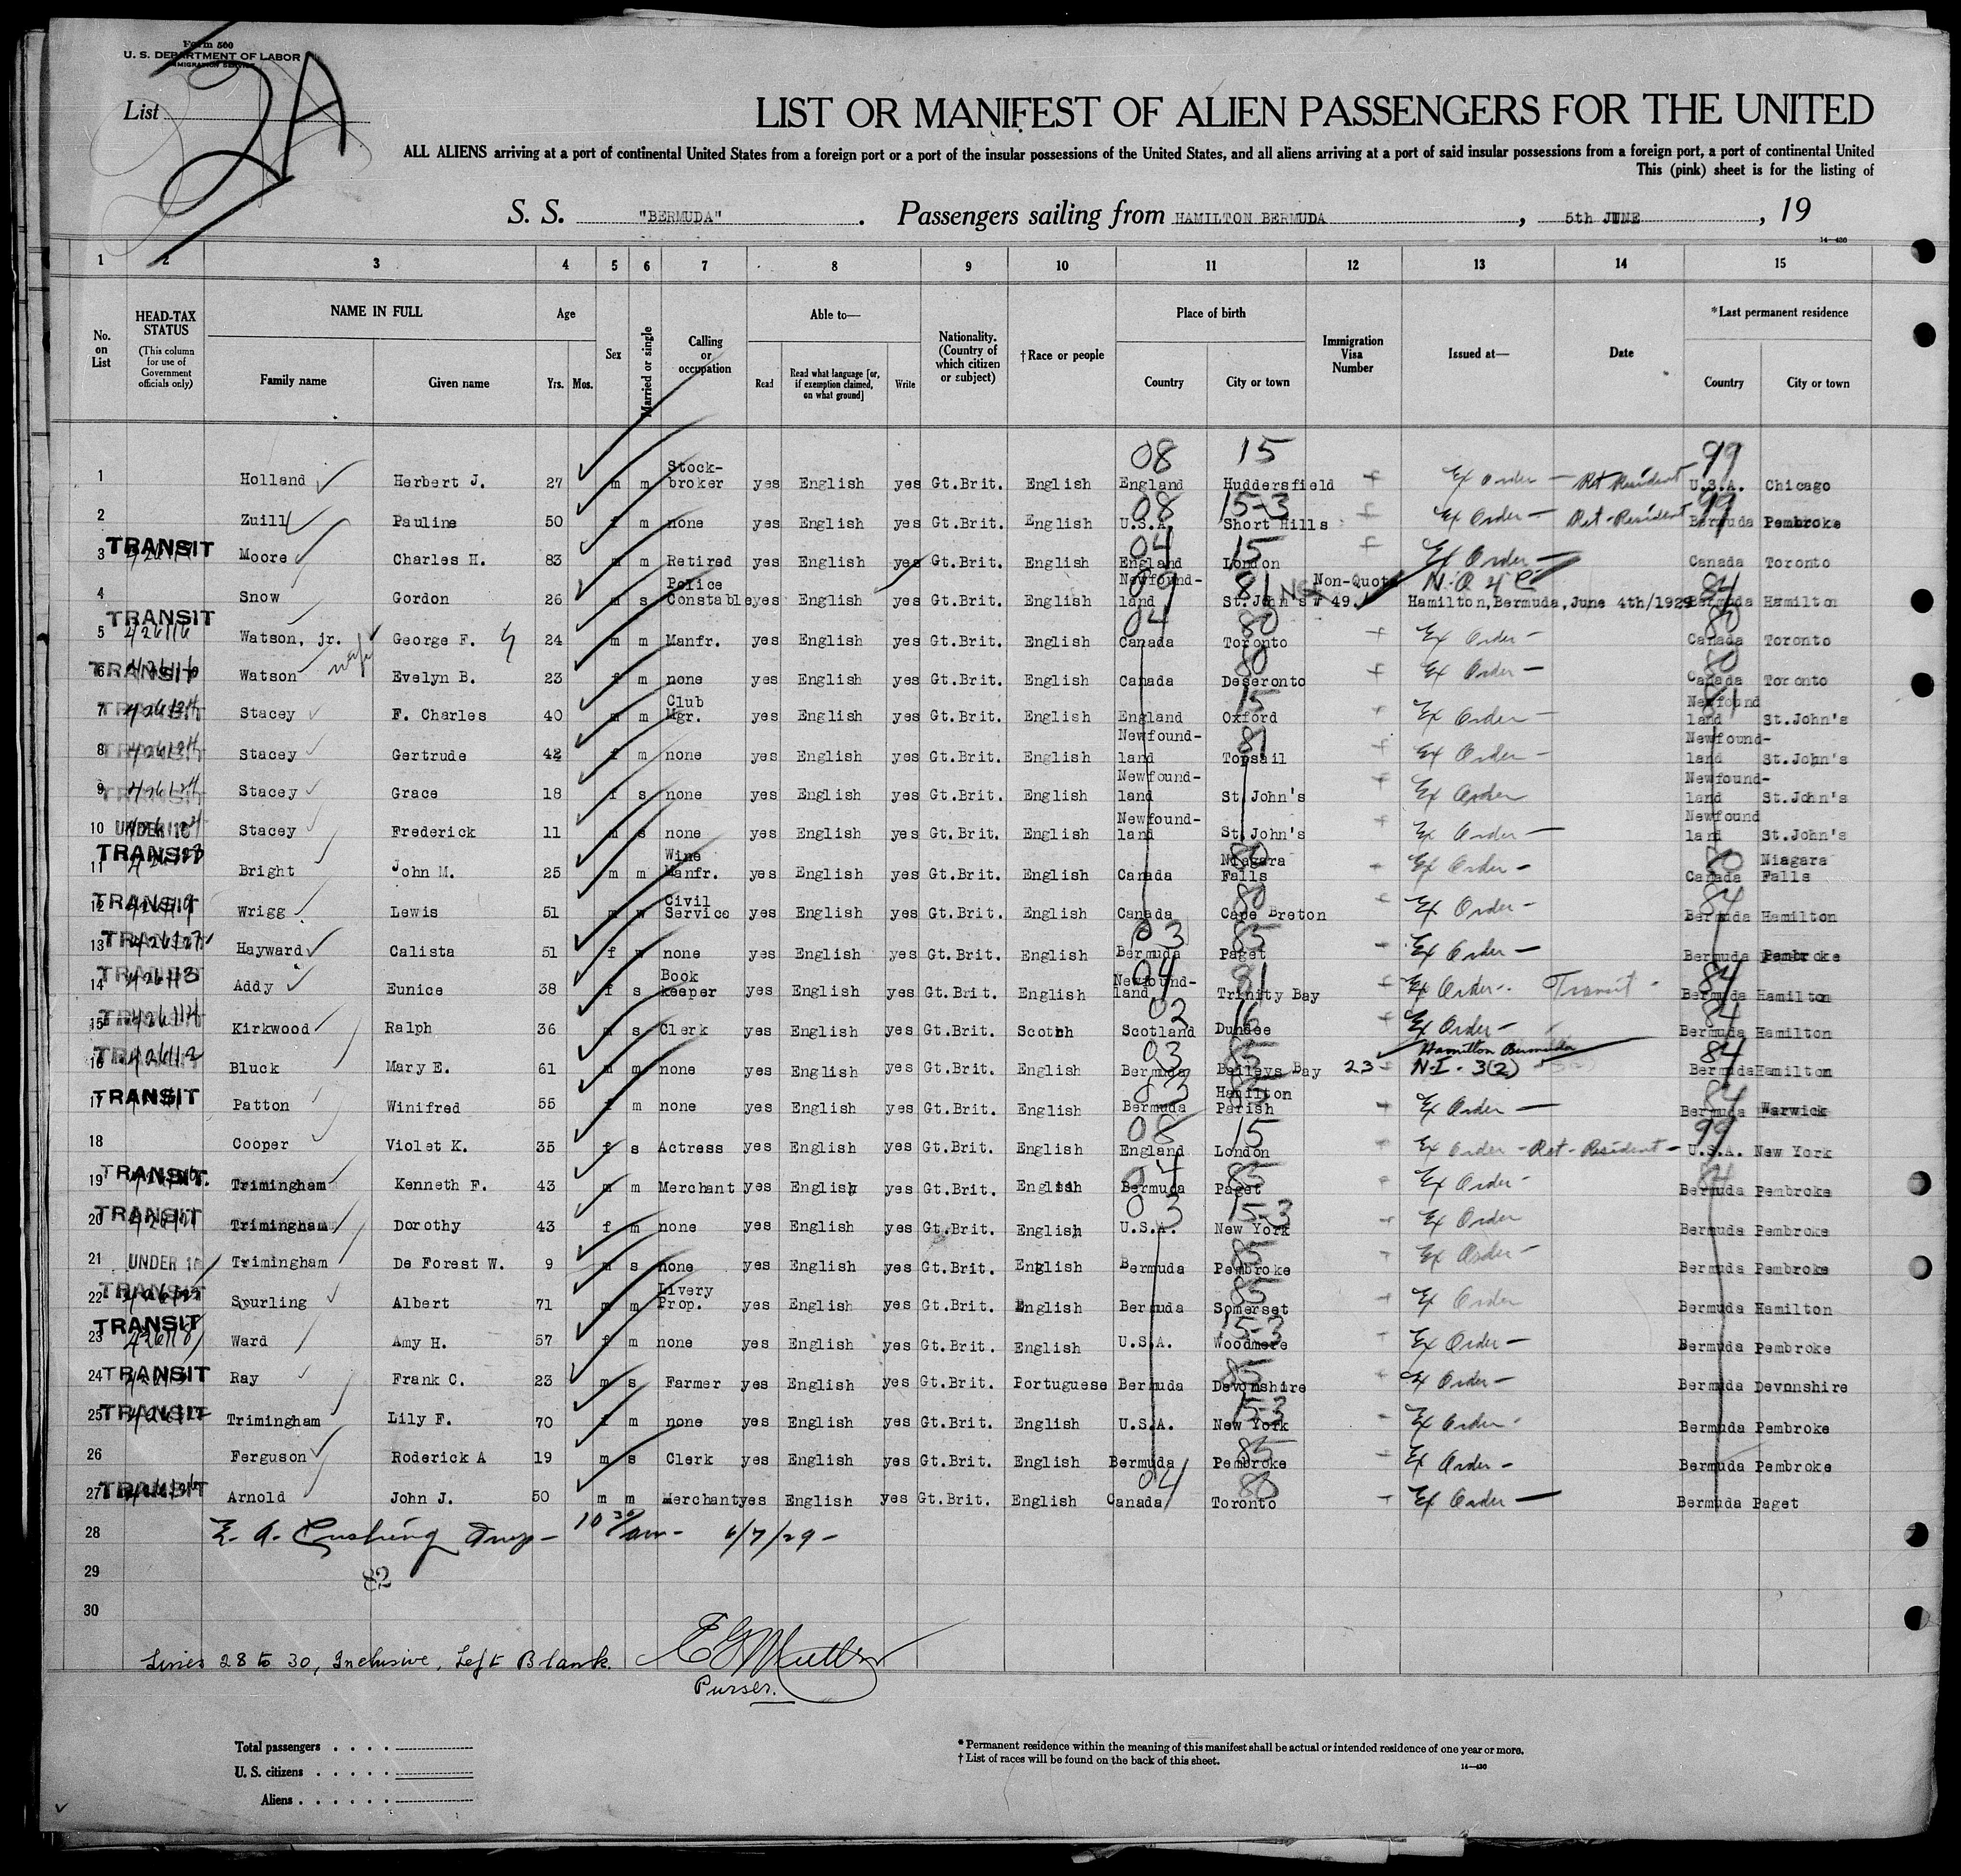 Form 500
U. S. DEPARTMENT OF LABOR
IMMIGRATION SERVICE
List
2A
LIST OR MANIFEST OF ALIEN PASSENGERS FOR THE UNITED
ALL ALIENS arriving at a port of continental United States from a foreign port or a port of the insular possessions of the United States, and all aliens arriving at a port of said insular possessions from a foreign port, a port of continental United
This (pink) sheet is for the listing of
S. S. "BERMUDA". Passengers sailing from HAMILTON BERMUDA, 5th JUNE, 19
14—430
1 2 3 4 5 6 7 8 9 10 11 12 13 14 15
No. on List
HEAD-TAX STATUS (This column for use of Government officials only)
NAME IN FULL
Family name Given name
Age Yrs. Mos.
Sex
Married or single
Calling or occupation
Able to—
Read Read what language [or, if exemption claimed, on what ground] Write
Nationality. (Country of which citizen or subject)
†Race or people
Place of birth
Country City or town
Immigration Visa Number
Issued at—
Date
*Last permanent residence
Country City or town
08 15 99
1 Holland Herbert J. 27 m m Stock-broker yes English yes Gt.Brit. English England Huddersfield Ex Order — Ret Resident U.S.A. Chicago
08 15-3 99
2 Zuill Pauline 50 f m none yes English yes Gt.Brit. English U.S.A. Short Hills Ex Order — Ret-Resident Bermuda Pembroke
04 15
3 TRANSIT Moore Charles H. 83 m m Retired yes English yes Gt.Brit. English England London Ex Order — Canada Toronto
81 84
4 Snow Gordon 26 m s Police Constable yes English yes Gt.Brit. English Newfound-land St.John's Non-Quota 49. N.Q 4 C Hamilton,Bermuda,June 4th/1929 Bermuda Hamilton
04 80 80
5 TRANSIT Watson, jr. George F. 24 m m Manfr. yes English yes Gt.Brit. English Canada Toronto Ex Order — Canada Toronto
80 80
6 TRANSIT Watson wife Evelyn B. 23 f m none yes English yes Gt.Brit. English Canada Deseronto Ex Order — Canada Toronto
15 81
7 TRANSIT Stacey F. Charles 40 m m Club Mgr. yes English yes Gt.Brit. English England Oxford Ex Order — Newfound land St.John's
81
8 TRANSIT Stacey Gertrude 42 f m none yes English yes Gt.Brit. English Newfound-land Topsail Ex Order — Newfound-land St.John's
9 TRANSIT Stacey Grace 18 f s none yes English yes Gt.Brit. English Newfound-land St.John's Ex Order Newfound-land St.John's
10 UNDER 16 Stacey Frederick 11 m s none yes English yes Gt.Brit. English Newfound-land St.John's Ex Order — Newfound land St.John's
80 80
11 TRANSIT Bright John M. 25 m m Wine Manfr. yes English yes Gt.Brit. English Canada Niagara Falls Ex Order — Canada Niagara Falls
80 84
12 TRANSIT Wrigg Lewis 51 m w Civil Service yes English yes Gt.Brit. English Canada Cape Breton Ex Order — Bermuda Hamilton
03 85
13 TRANSIT Hayward Calista 51 f w none yes English yes Gt.Brit. English Bermuda Paget Ex Order — Bermuda Pembroke
04 81 84
14 TRANSIT Addy Eunice 38 f s Book keeper yes English yes Gt.Brit. English Newfound-land Trinity Bay Ex Order — Transit — Bermuda Hamilton
02 16 84
15 TRANSIT Kirkwood Ralph 36 m s Clerk yes English yes Gt.Brit. Scotch Scotland Dundee Ex Order — Bermuda Hamilton
03 85 84
16 TRANSIT Bluck Mary E. 61 m none yes English yes Gt.Brit. English Bermuda Baileys Bay 23 Hamilton Bermuda N.I. 3(2) Bermuda Hamilton
03 85 84
17 TRANSIT Patton Winifred 55 f m none yes English yes Gt.Brit. English Bermuda Hamilton Parish Ex Order — Bermuda Warwick
08 15 99
18 Cooper Violet K. 35 f s Actress yes English yes Gt.Brit. English England London Ex Order — Ret-Resident — U.S.A. New York
04 85 84
19 TRANSIT. Trimingham Kenneth F. 43 m m Merchant yes English yes Gt.Brit. English Bermuda Paget Ex Order — Bermuda Pembroke
03 15-3
20 TRANSIT Trimingham Dorothy 43 f m none yes English yes Gt.Brit. English U.S.A. New York Ex Order Bermuda Pembroke
85
21 UNDER 16 Trimingham De Forest W. 9 m s none yes English yes Gt.Brit. English Bermuda Pembroke Ex Order — Bermuda Pembroke
85
22 TRANSIT Spurling Albert 71 m m Livery Prop. yes English yes Gt.Brit. English Bermuda Somerset Ex Order Bermuda Hamilton
15-3
23 TRANSIT Ward Amy H. 57 f m none yes English yes Gt.Brit. English U.S.A. Woodmere Ex Order — Bermuda Pembroke
85
24 TRANSIT Ray Frank C. 23 m s Farmer yes English yes Gt.Brit. Portuguese Bermuda Devonshire Ex Order — Bermuda Devonshire
15-3
25 TRANSIT Trimingham Lily F. 70 f m none yes English yes Gt.Brit. English U.S.A. New York Ex Order — Bermuda Pembroke
85
26 Ferguson Roderick A 19 m s Clerk yes English yes Gt.Brit. English Bermuda Pembroke Ex Order — Bermuda Pembroke
04 80
27 TRANSIT Arnold John J. 50 m m Merchant yes English yes Gt.Brit. English Canada Toronto Ex Order — Bermuda Paget
28 E. A. Cushing Insp — 10 30/am — 6/7/29 —
29 82
30
Lines 28 to 30, Inclusive, Left Blank.
Purser.
Total passengers
U. S. citizens
Aliens
* Permanent residence within the meaning of this manifest shall be actual or intended residence of one year or more.
† List of races will be found on the back of this sheet.
14—430